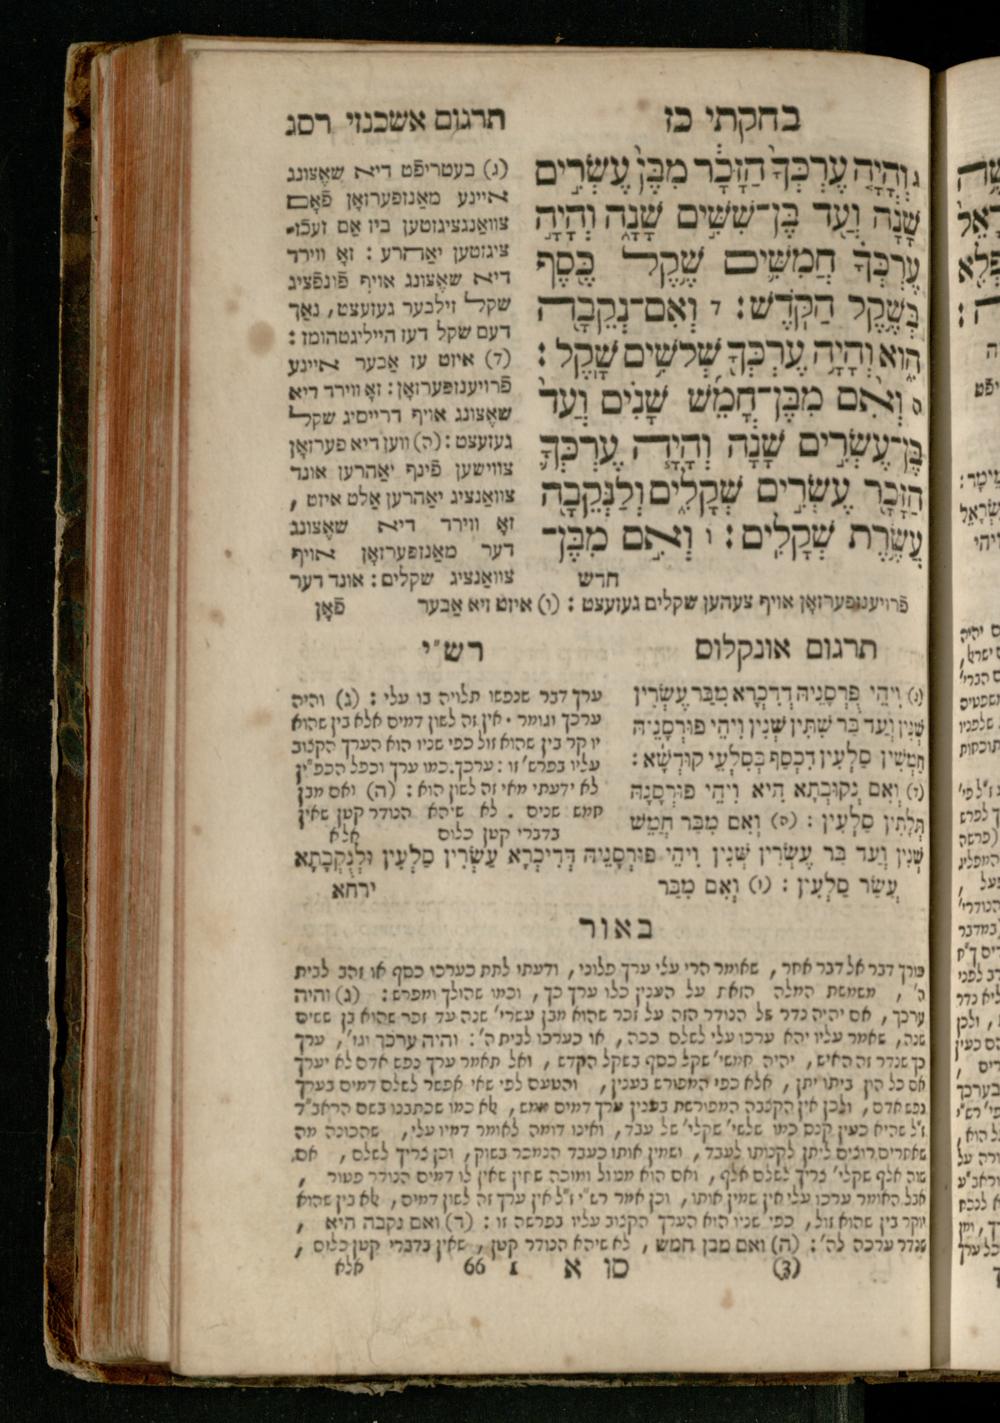 בחקתי כז
תרגום אשכנזי רסג
ג וְהָיָה עֶרְכְּךָ הַזָּכָר מִבֶּן עֶשְׂרִים
שָׁנָה וְעַד בֶּן־שִׁשִּׁים שָׁנָה וְהָיָה
עֶרְכְּךָ חֲמִשִּׁים שֶׁקֶל כֶּסֶף
בְּשֶׁקֶל הַקֹּדֶשׁ : ד וְאִם־נְקֵבָה
הִוא וְהָיָה עֶרְכְּךָ שְׁלשִׁים שָׁקֶל :
ה וְאִם מִבֶּן־חָמֵשׁ שָׁנִים וְעַד
בֶּן־עֶשְׂרִים שָׁנָה וְהָיָה עֶרְכְּךָ
הַזָּכָר עֶשְׂרִים שְׁקָלִים וְלַנְּקֵבָה
עֲשֶׂרֶת שְׁקָלִים : ו וְאִם מִבֶּן־
חדש
(ג) בעטריפֿט דיא שאֶצונג
איינע מאַנזפערזאָן פֿאָם
צוואַנציגזטען ביז אם זעכֿ־
ציגזטען יאַהרע : זאָ ווירד
דיא שאֶצונג אויף פֿונפֿציג
שקל זילבער געזעצט, נאָך
דעם שקל דעז הייליגטהומז :
(ד) איזט עז אַבער איינע
פֿרויענזפערזאָן : זאָ ווירד דיא
שאֶצונג אויף דרייסיג שקל
געזעצט : (ה) ווען דיא פערזאָן
צווישען פֿינף יאַהרען אונד
צוואַנציג יאַהרען אַלט איזט ,
זאָ ווירד דיא שאֶצונג
דער מאַנזפערזאָן אויף
צוואַנציג שקלים : אונד דער
פֿרויענזפערזאָן אויף צעהען שקלים געזעצט : (ו) איזט זיא אַבער פֿאָן
תרגום אונקלוס
(ג) וִיהֵי פֻּרְסָנֵיהּ דִּדְכָרָא מִבַּר עֶשְׂרִין
שְׁנִין וְעַד בַּר שִׁתִּין שְׁנִין וִיהֵי פוּרְסָנֵיהּ
חַמְשִׁין סַלְעִין דִכְסַף בְּסִלְעֵי קוּדְשָׁא :
(ד) וְאִם נְקוּבְתָא הִיא וִיהֵי פוּרְסָנַהּ
תְּלָתִין סַלְעִין : (ה) וְאִם מִבַּר חֲמֵשׁ
שְׁנִין וְעַד בַּר עֶשְׂרִין שְׁנִין וִיהֵי פוּרְסָנֵיהּ דְּדִיכְרָא עַשְׂרִין סַלְעִין וְלִנְקֻבְתָא
עֲשַׂר סַלְעִין : (ו) וְאִם מִבַּר
ירחא
רש"י
ערך דבר שנפשו תלויה בו עלי : (ג) והיה
ערכך וגומר . אין זה לשון דמים אלא בין שהוא
יוקר בין שהוא זול כפי שניו הוא הערך הקצוב
עליו בפרש' זו : ערכך. כמו ערך וכפל הכפי"ן
לא ידעתי מאי זה לשון הוא : (ה) ואם מבן
חמש שנים . לא שיהא הנודר קטן שאין
בדברי קטן כלום אלא
באור
בורך דבר אל דבר אחר, שאומר הרי עלי ערך פלוני, ודעתו לתת כערכו כסף או זהב לבית
ה' , משמשת המלה הזאת על הענין כלו ערך כך, וכמו שהולך ומפרש : (ג) והיה
ערכך, אם יהיה נדר של הנודר הזה על זכר שהוא מבן עשרי' שנה עד זכר שהוא בן ששים
שנה, שאמר עליו יהא ערכו עלי לשלם ככה, או כערכו לבית ה' : והיה ערכך וגו', ערך
כך שנדר זה האיש, יהיה חמשי' שקל כסף בשקל הקדש, ואל תאמר ערך נפש אדם לא יערך
אם כל הון ביתו יתן, אלא כפי המפורש בענין, והטעם לפי שאי אפשר לשלם דמים בערך
נפש אדם, ולכן אין הקצבה המפורשת בענין ערך דמים ממש, לא כמו שכתבנו בשם הראב"ד
ז"ל שהיא כעין קנס כמו שלשי' שקלי' של עבד, ואינו דומה לאומר דמיו עלי, שהכונה מה
שאחרים רוצים ליתן לקנותו לעבד, ושמין אותו כעבד הנמכר בשוק, וכן צריך לשלם, אם
שוה אלף שקלי' צריך לשלם אלף, ואם הוא מנוול ומוכה שחין שאין לו דמים הנודר פטור ,
אבל האומר ערכו עלי אין שמין אותו, וכן אמר רש"י ז"ל אין ערך זה לשון דמים, לא בין שהוא
יוקר בין שהוא זול, כפי שניו הוא הערך הקצוב עליו בפרשה זו : (ד) ואם נקבה היא ,
שנדר ערכה לה' : (ה) ואם מבן חמש, לא שיהא הנודר קטן, שאין בדברי קטן כלום,
(3) סו א 1 66 אלא